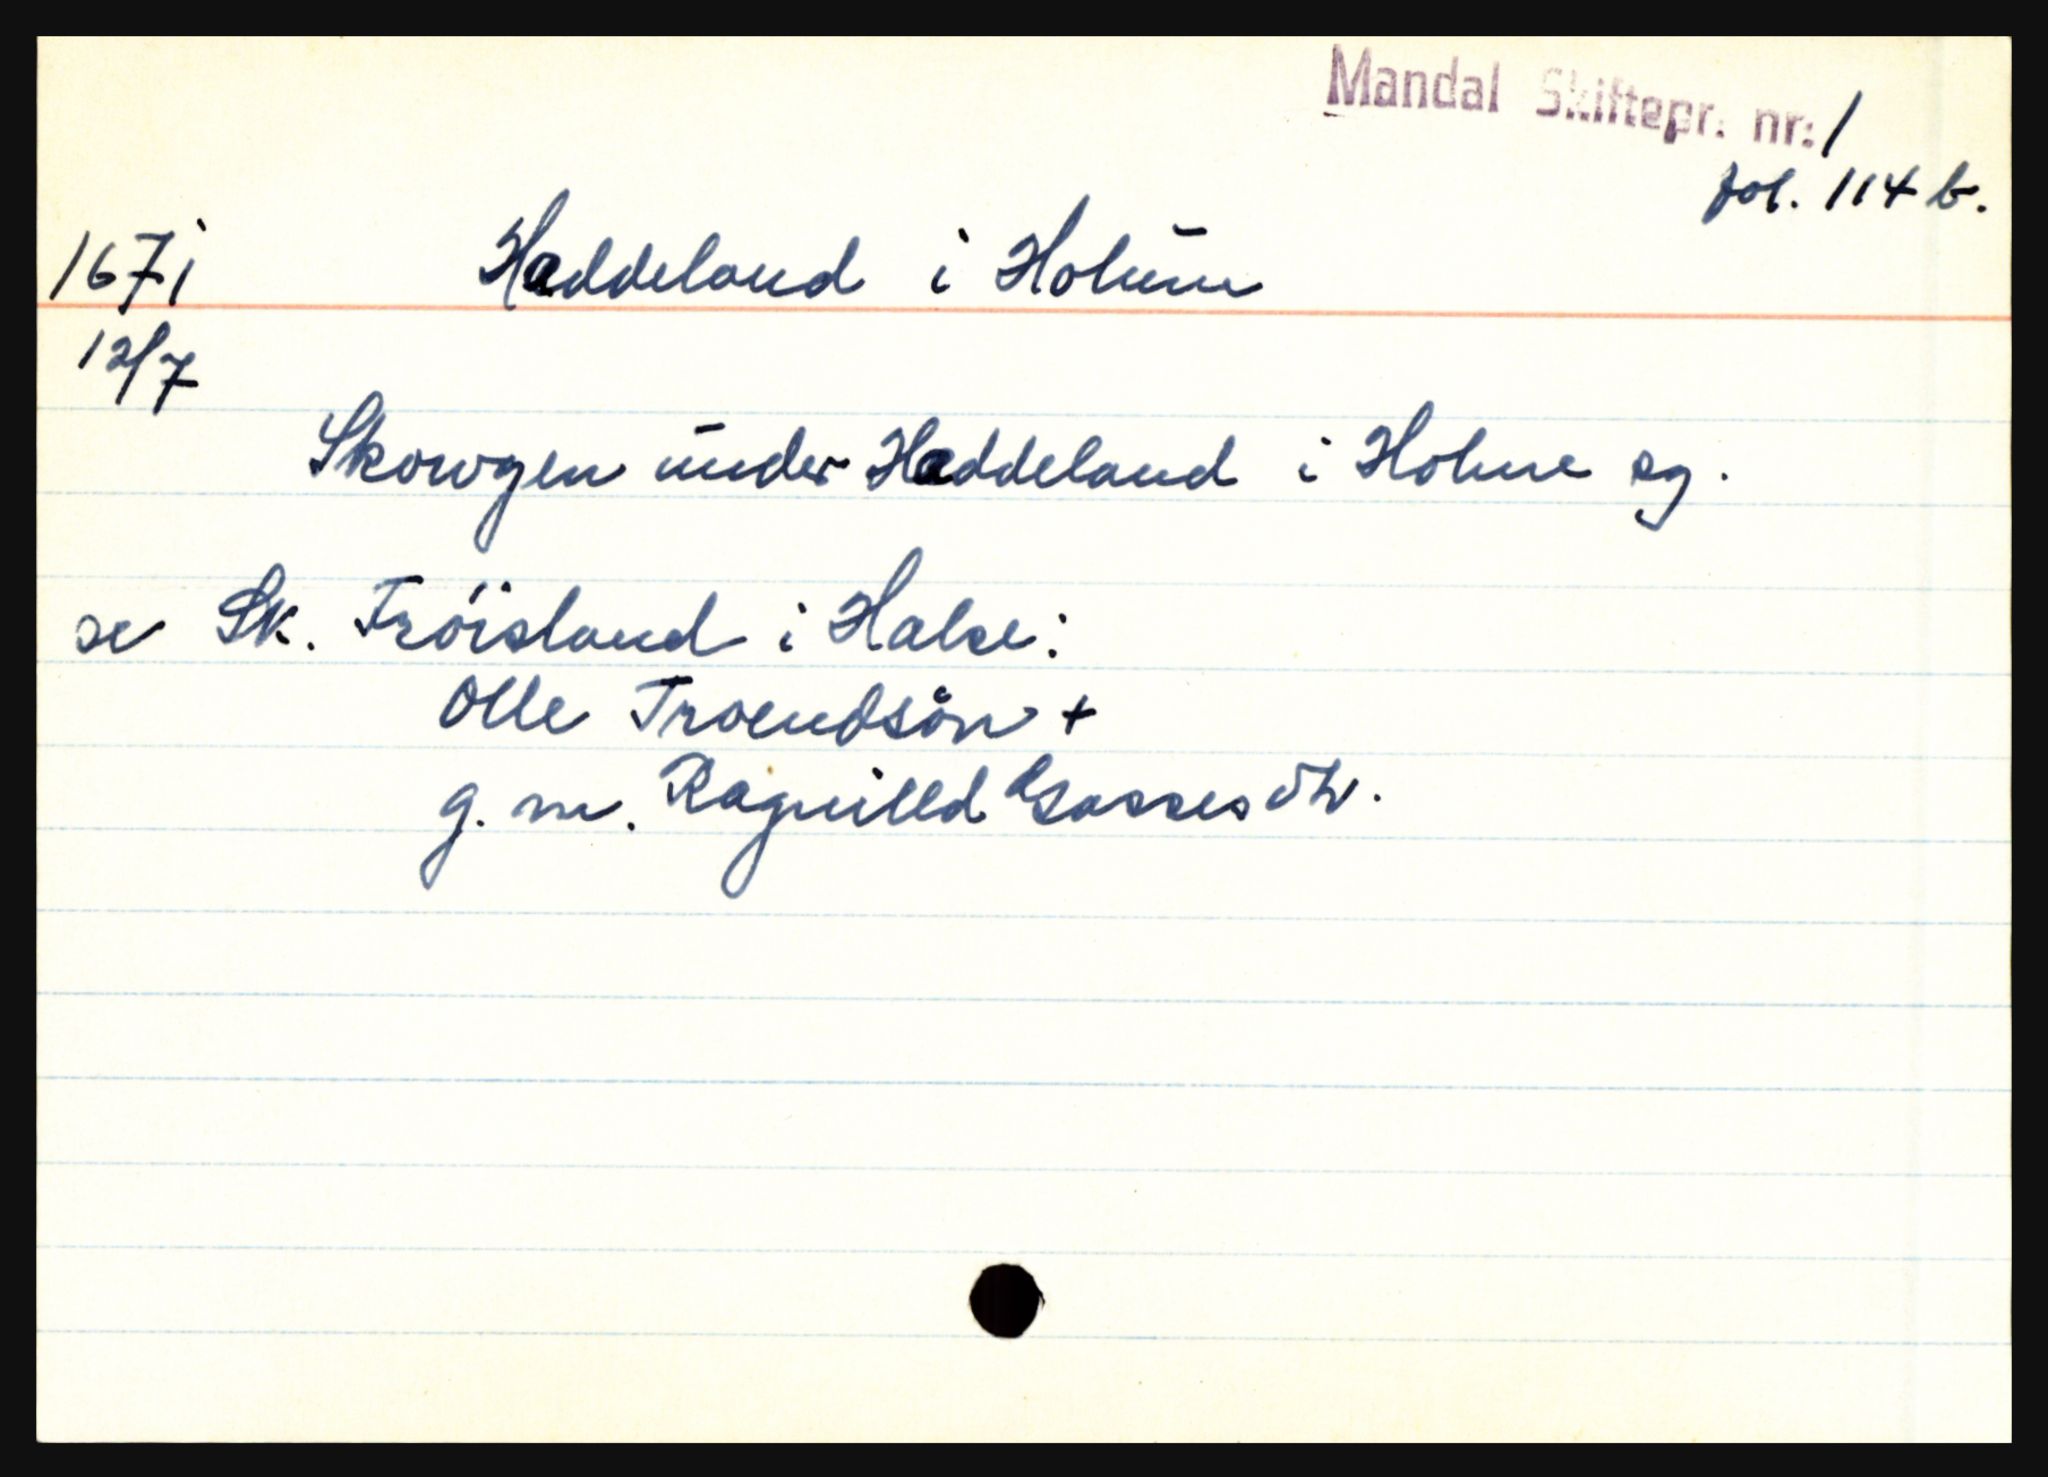 Mandal Skiftepr. nr: 1
fol. 114 b.
1671 Haddeland i Holum
12/7
Skowgen under Haddeland i Holme sg.
se Sk. Tröisland i Halse:
Olle Troendsön +
g. m. Ragnilld Gasses dtr.